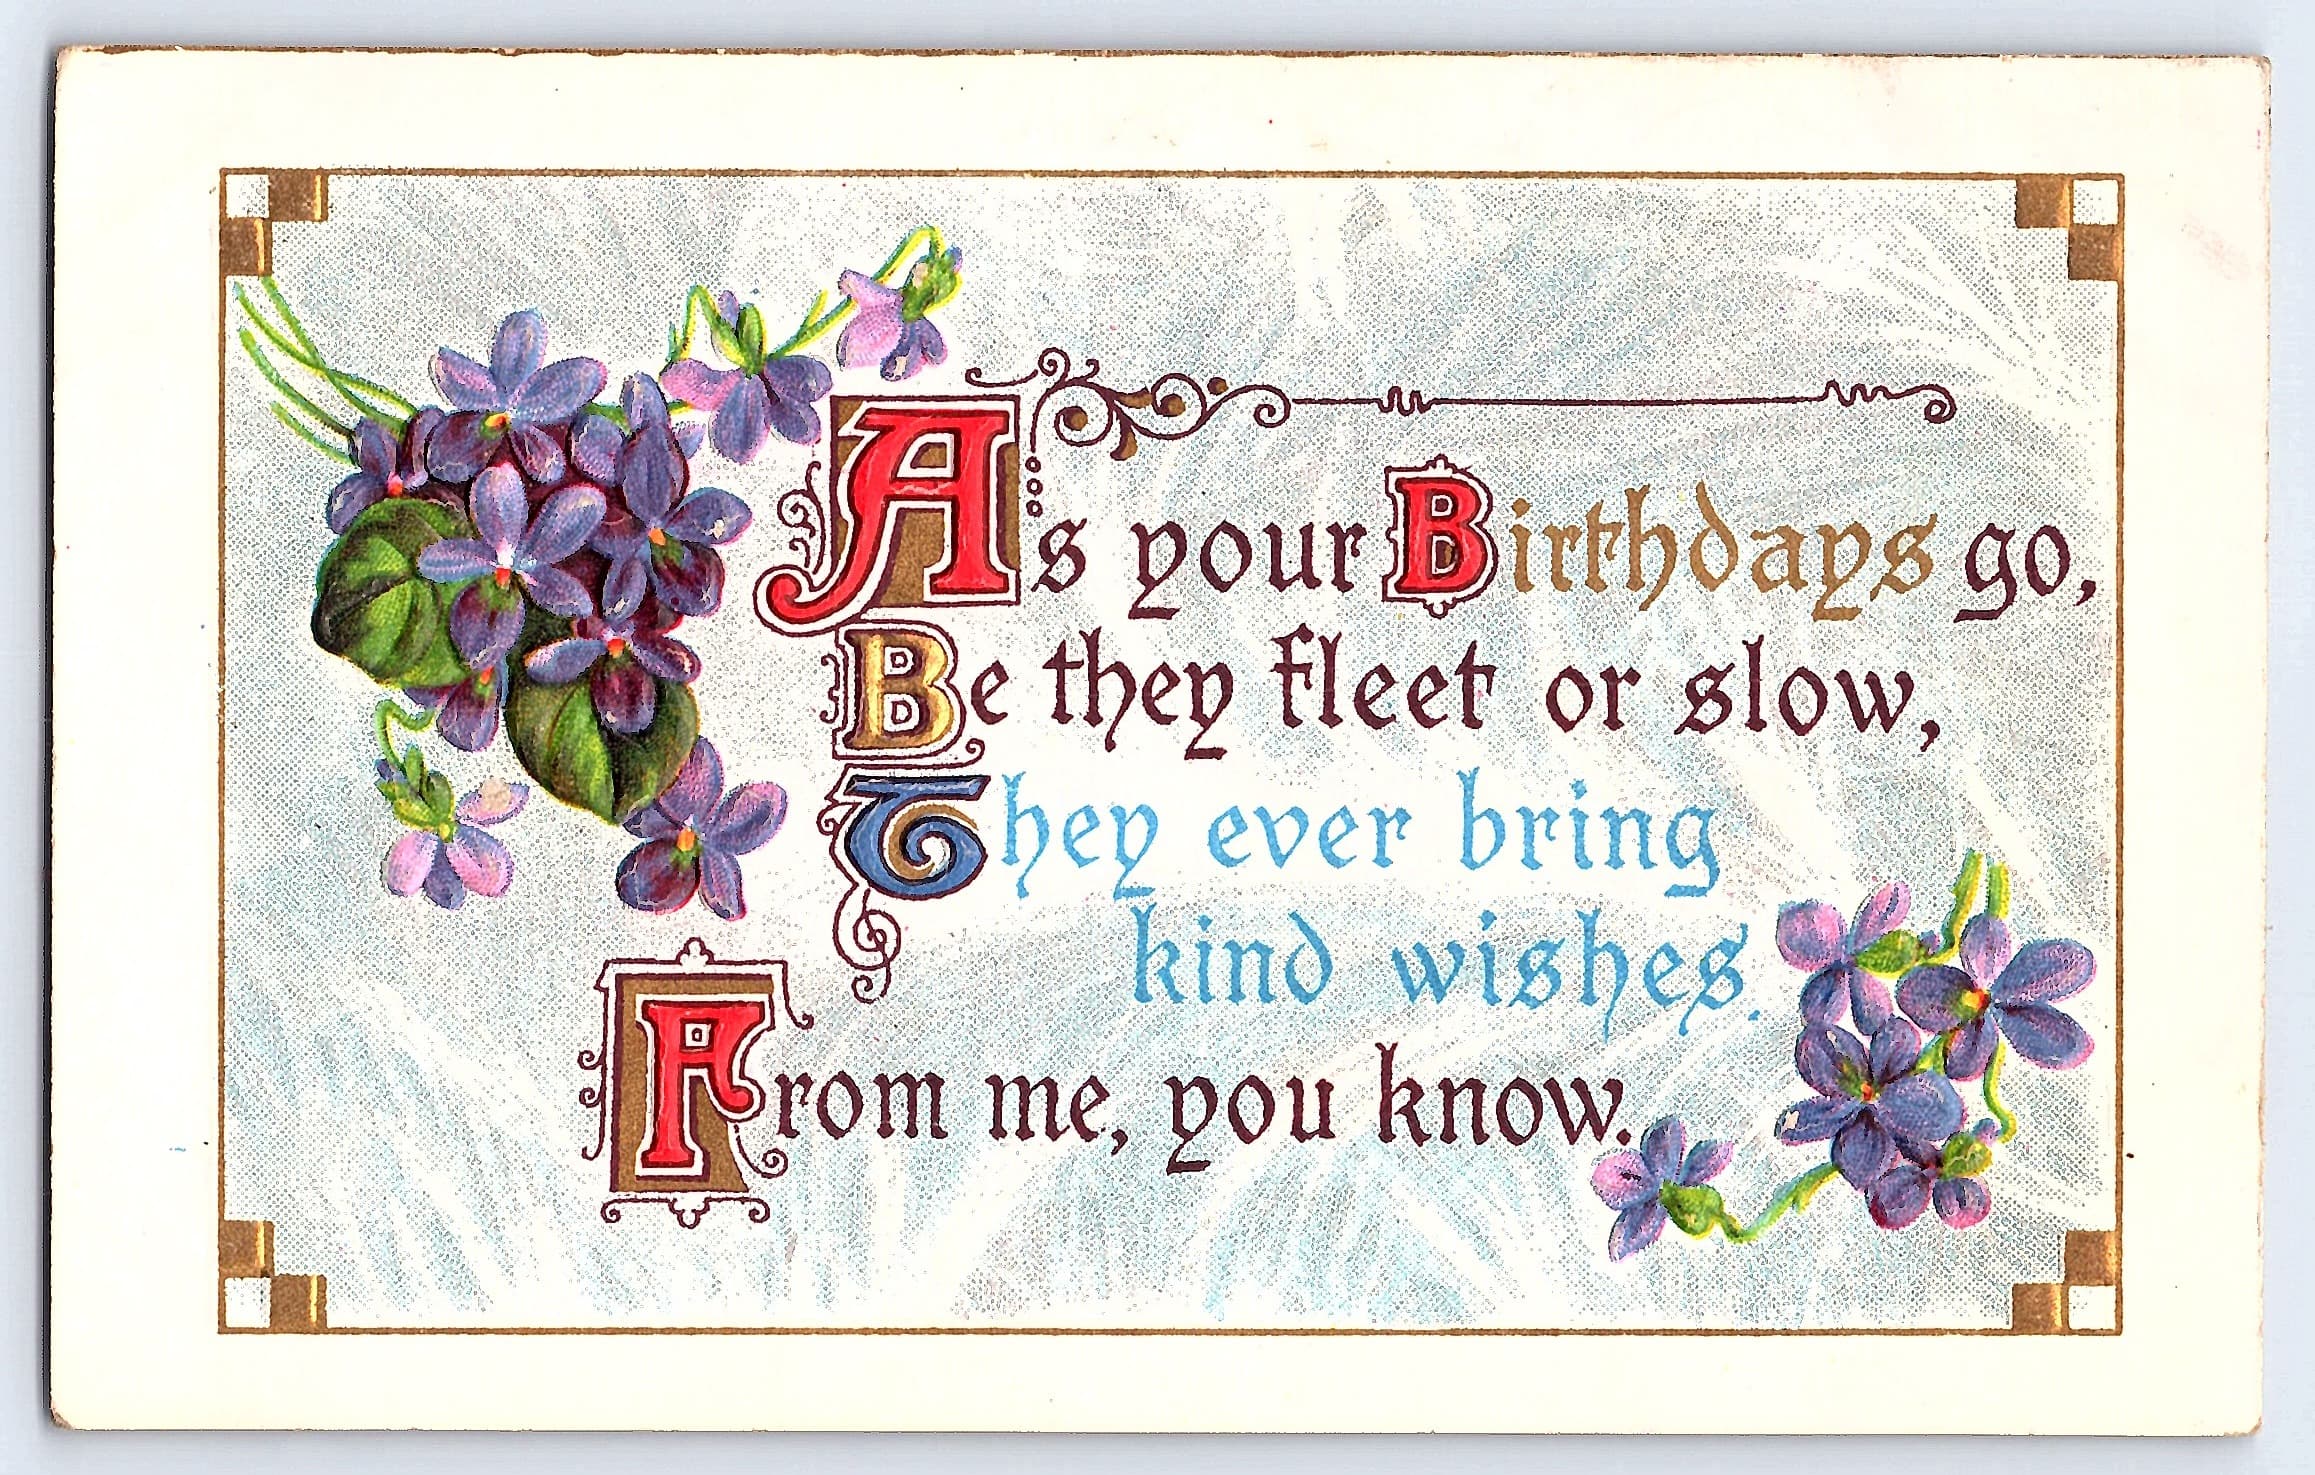 As your Birthdays go,
Be they fleet or slow,
They ever bring
kind wishes.
From me, you know.